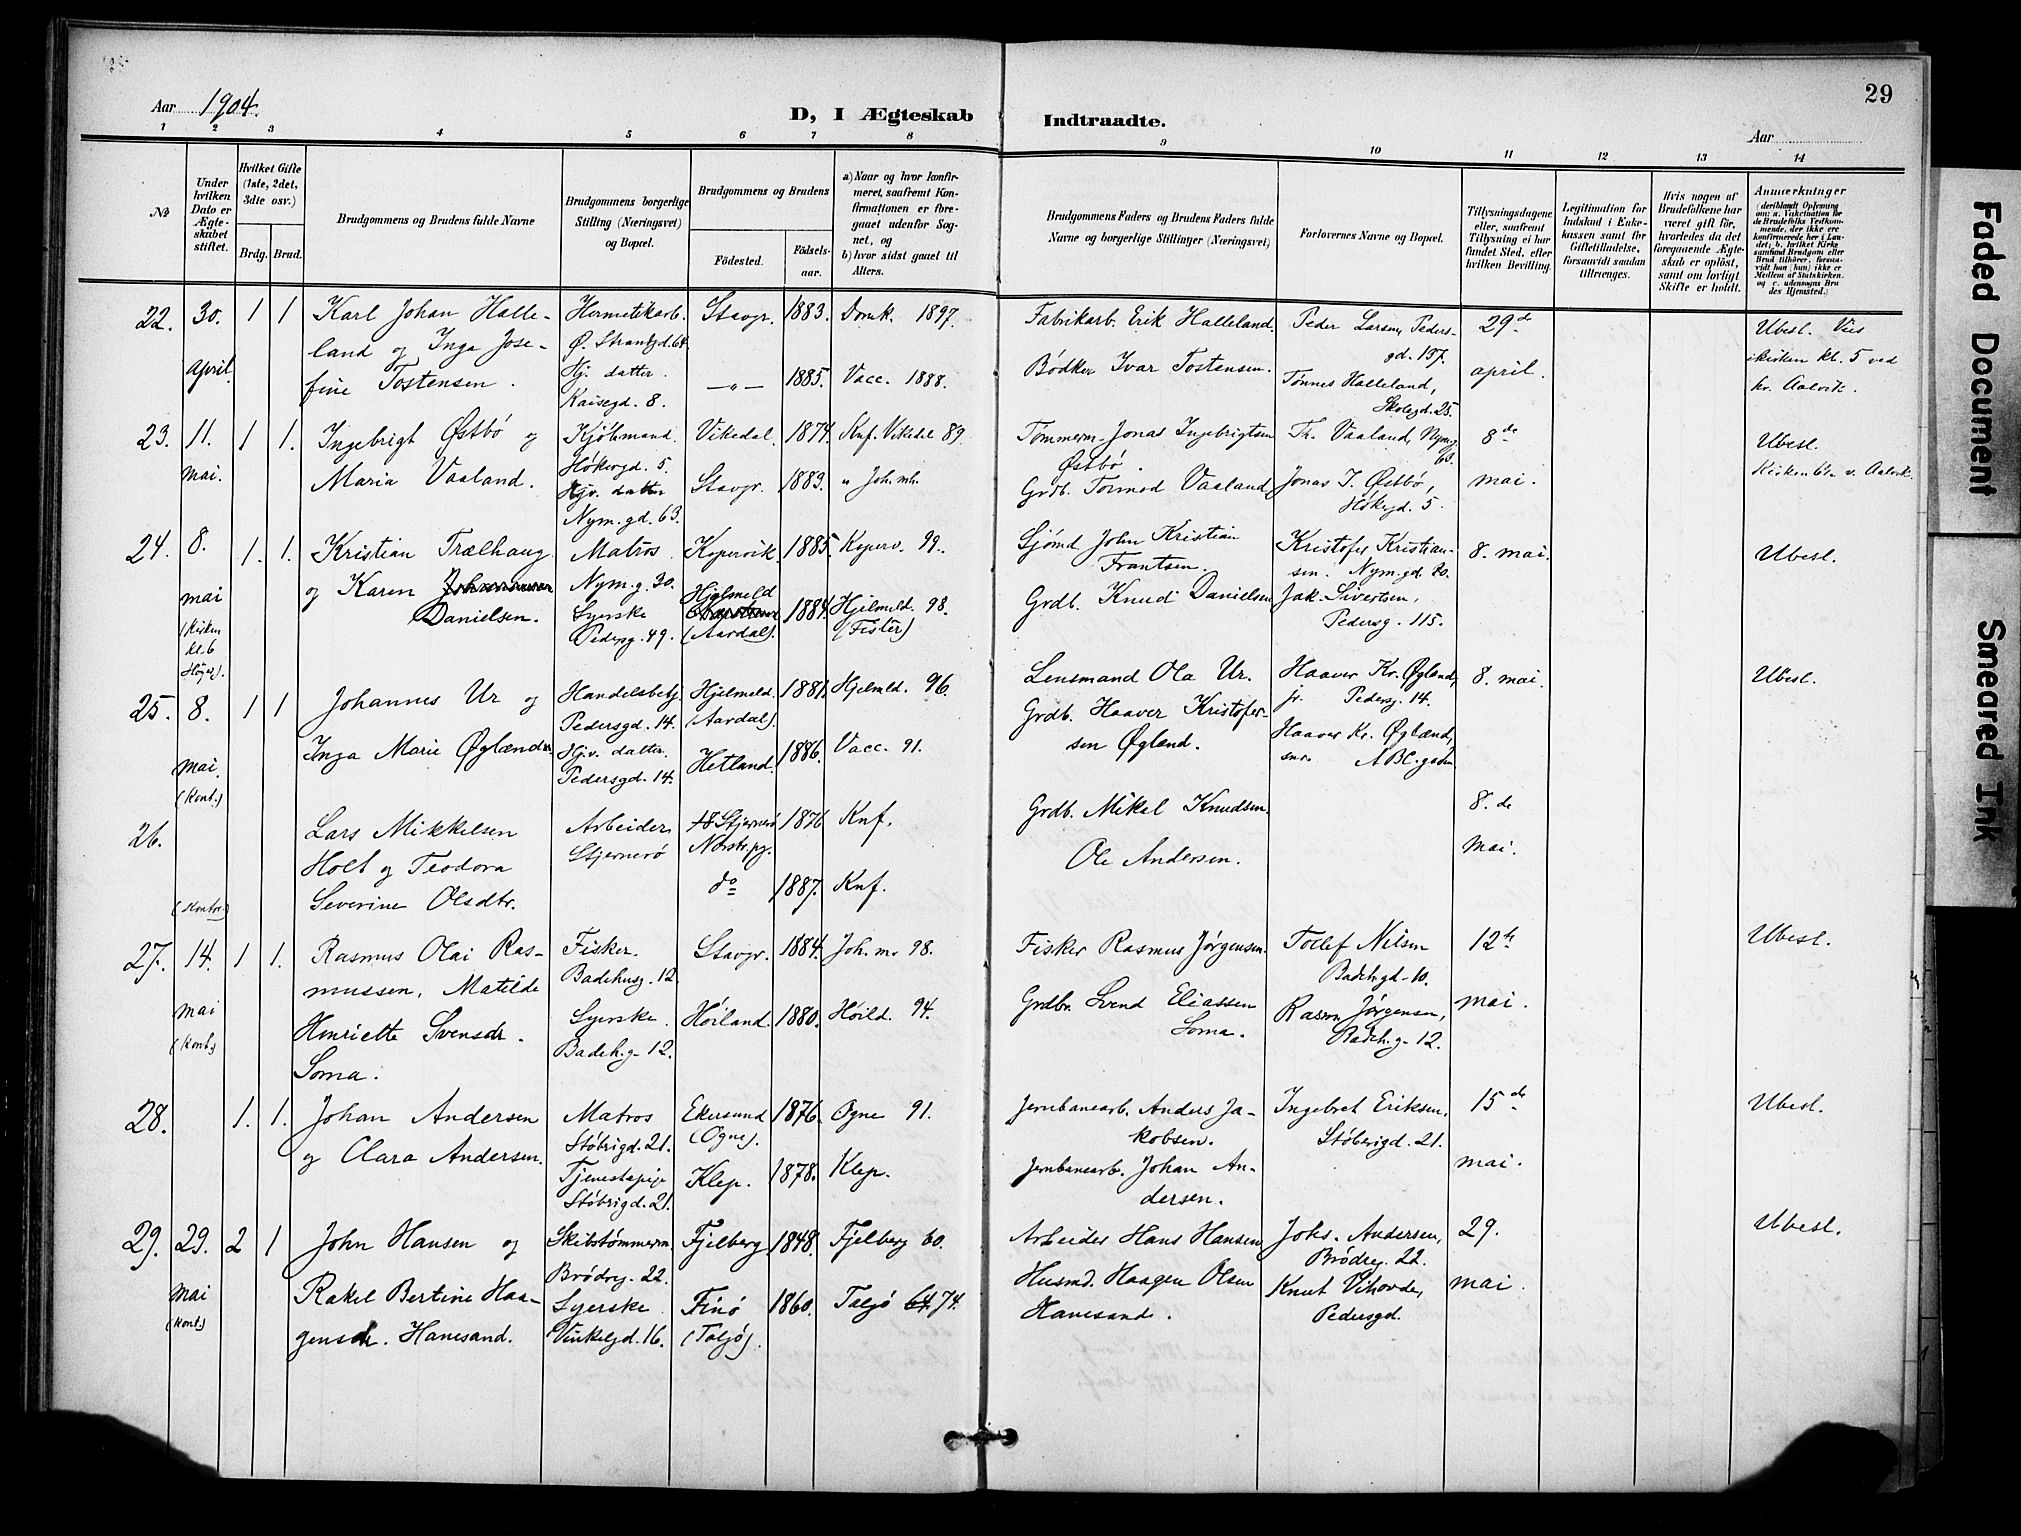 29
Aar 1904.
D, I Ægteskab Indtraadte.
Aar
1 2 3 4 5 6 7 8 9 10 11 12 13 14
No
Under hvilken Dato er Ægteskabet stiftet.
Hvilket Gifte (1ste, 2det, 3die osv.)
Brdg. Brud.
Brudgommens og Brudens fulde Navne
Brudgommens borgerlige Stilling (Næringsvei) og Bopæl.
Brudgommens og Brudens
Födested. Födselsaar.
a) Naar og hvor konfirmeret, saafremt Konfirmationen er foregaaet udenfor Sognet, og
b) hvor sidst gaaet til Alters.
Brudgommens Faders og Brudens Faders fulde Navne og borgerlige Stillinger (Næringsvei)
Forlovernes Navne og Bopæl.
Tillysningsdagene eller, saafremt Tillysning ei har fundet Sted, efter hvilken Bevilling.
Legitimation for Indskud i Enkekassen samt for Giftetilladelse, forsaavidt saadan tiltrænges.
Hvis nogen af Brudefolkene har været gift för, hvorledes da det foregaaende Ægteskab er oplöst, samt om lovligt Skifte er holdt.
Anmerkninger
(deriblandt Oplysning om: a. Vakcination for de Brudefolks Vedkommende, der ikke ere konfirmerede her i Landet; b. hvilket Kirkesamfund Brudgom eller Brud tilhörer, forsaavidt han (hun) ikke er Medlem af Statskirken, og c. udensogns Brudes Hjemsted.)
22. 30. april. 1 1
Karl Johan Halle-
land og Inga Jose-
fine Tostensen.
Hermetikarb.
Ø. Strantgd. 64
Hj. datter.
Kaisegd. 8.
Stavgr. 1883. Domk. 1897.
—„— 1885. Vacc. 1888.
Fabrikarb. Erik Halleland.
Bødker Ivar Tostensen.
Peder Larsen, Peders-
gd. 137.
Tønnes Halleland,
Skolegd. 25.
29de april.
Ubesl. Vies
i kirken kl. 5 ved
hr. Aalvik.
23. 11. mai. 1 1.
Ingebrigt Østbø og
Maria Vaaland.
Kjøbmand.
Høkergd. 5.
Hjv. datter
Nym. gd. 63.
Vikedal. 1874. Knf. Vikedl 89.
Stavgr. 1883. „ Joh. mh.
Tømmerm. Jonas Ingebrigtsen
Østbø.
Grdb. Tormod Vaaland
Th. Vaaland, Nymg.
63.
Jonas I. Østbø,
Høkegd. 5.
8de mai.
Ubesl.
Kirken v. Aalvik.
24. 8. mai (Kirken kl. 6 Høyer). 1. 1.
Kristian Trælhaug
og Karen
Danielsen.
Matros
Nym. g. 30.
Syerske
Pedersg. 49.
Kopervik 1885. Koperv. 99.
Hjelmeld
(Aardal). 1884. Hjelmeld. 98.
(Fister)
Sjømd. John Kristian
Frantsen.
Grdb. Knud Danielsen
Kristofer Kristian-
sen. Nym. gd. 20.
Jak. Sivertsen,
Pedersg. 115.
8. mai.
Ubesl.
25. 8. mai. (Kont.) 1 1
Johannes Ur og
Inga Marie Øglænd
Handelsbetj.
Pedersgd. 14.
Hjv. datter.
Pedersgd. 14.
Hjelmeld. 1881. Hjelmld. 96.
(Aardal).
Hetland. 1886. Vacc. 91.
Lensmand Ola Ur.
Grdb. Haaver Kristofer-
sen Øglend.
Haaver Kr. Øglænd,
jr. Pedersg. 14.
Haaver Kr. Øglænd,
snr. ABC. gaden
8. mai.
Ubesl.
26. (Kontor)
Lars Mikkelsen
Holt og Teodora
Severine Olsdtr.
Arbeider
Stjernerø
Stjernerø 1876 Knf.
Nerstr. pg.
do 1887. Knf.
Grdb. Mikal Knudsen.
Ole Andersen.
8. de mai.
27. 14. mai (Kont.) 1 1.
Rasmus Olai Ras-
mussen, Matilde
Henriette Svensdr.
Soma.
Fisker.
Badehusg. 12.
Syerske.
Badeh. g. 12.
Stavgr. 1884. Joh. m. 98.
Høiland. 1880. Høild. 94.
Fisker Rasmus Jørgensen.
Grdbr. Svend Eliassen
Soma.
Tollef Nilsen
Badeh. gd. 10.
Rasm. Jørgensen,
Badeh. g. 12.
12te mai.
Ubesl.
28. 1. 1.
Johan Andersen
og Clara Andersen.
Matros
Støbrigd. 21.
Tjenestepige
Støbrigd. 21.
Ekersund 1876. Ogne 91.
(Ogne).
Klep. 1878. Klep.
Jernbanearb. Anders Ja-
kobsen.
Jernbanearb. Johan An-
dersen.
Ingebret Eriksen.
Støberigd. 21.
15de mai.
Ubesl.
29. 29. mai (Kont.) 2 1
John Hansen og
Rakel Bertine Haa-
gensdr. Hanesand.
Skibstømmerm.
Brødreg. 22.
Syerske
Vinkelgd. 16.
Fjelberg 1848. Fjelberg 60.
Finø 1860. Taljø 64 74.
(Taljø).
Arbeider Hans Hansen
Husmd. Haagen Olsen
Hanesand.
Johs. Andersen,
Brødreg. 22.
Knut Vihovde,
Pedersgd.
29. mai.
Ubesl.
Faded Document
Smeared Ink